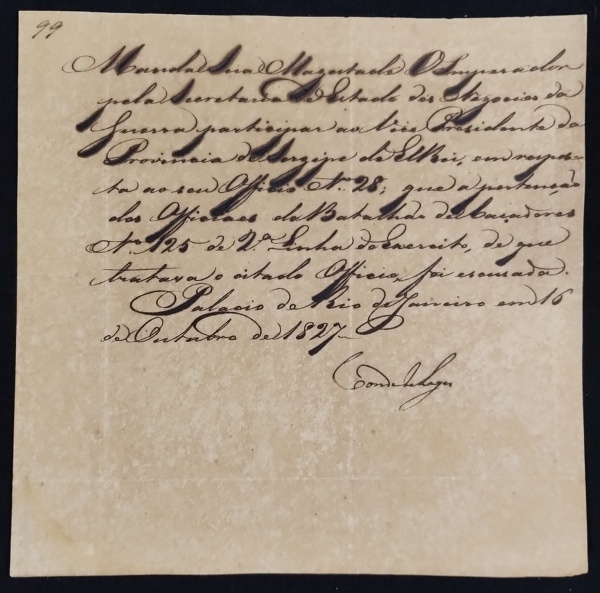 99
Manda Sua Magestade O Imperador
pela Secretaria d'Estado dos Negocios da
Guerra participar ao Vice Presidente da
Provincia de Sergipe de ElRei, em respos-
ta ao seu Officio Nº 28; que a pertenção
dos Officiaes do Batalhão de Caçadores
Nº 125 de 2ª Linha do Exercito, de que
tratava o citado Officio, foi escusada.
Palacio do Rio de Janeiro em 16
de Outubro de 1827
Conde de Lages